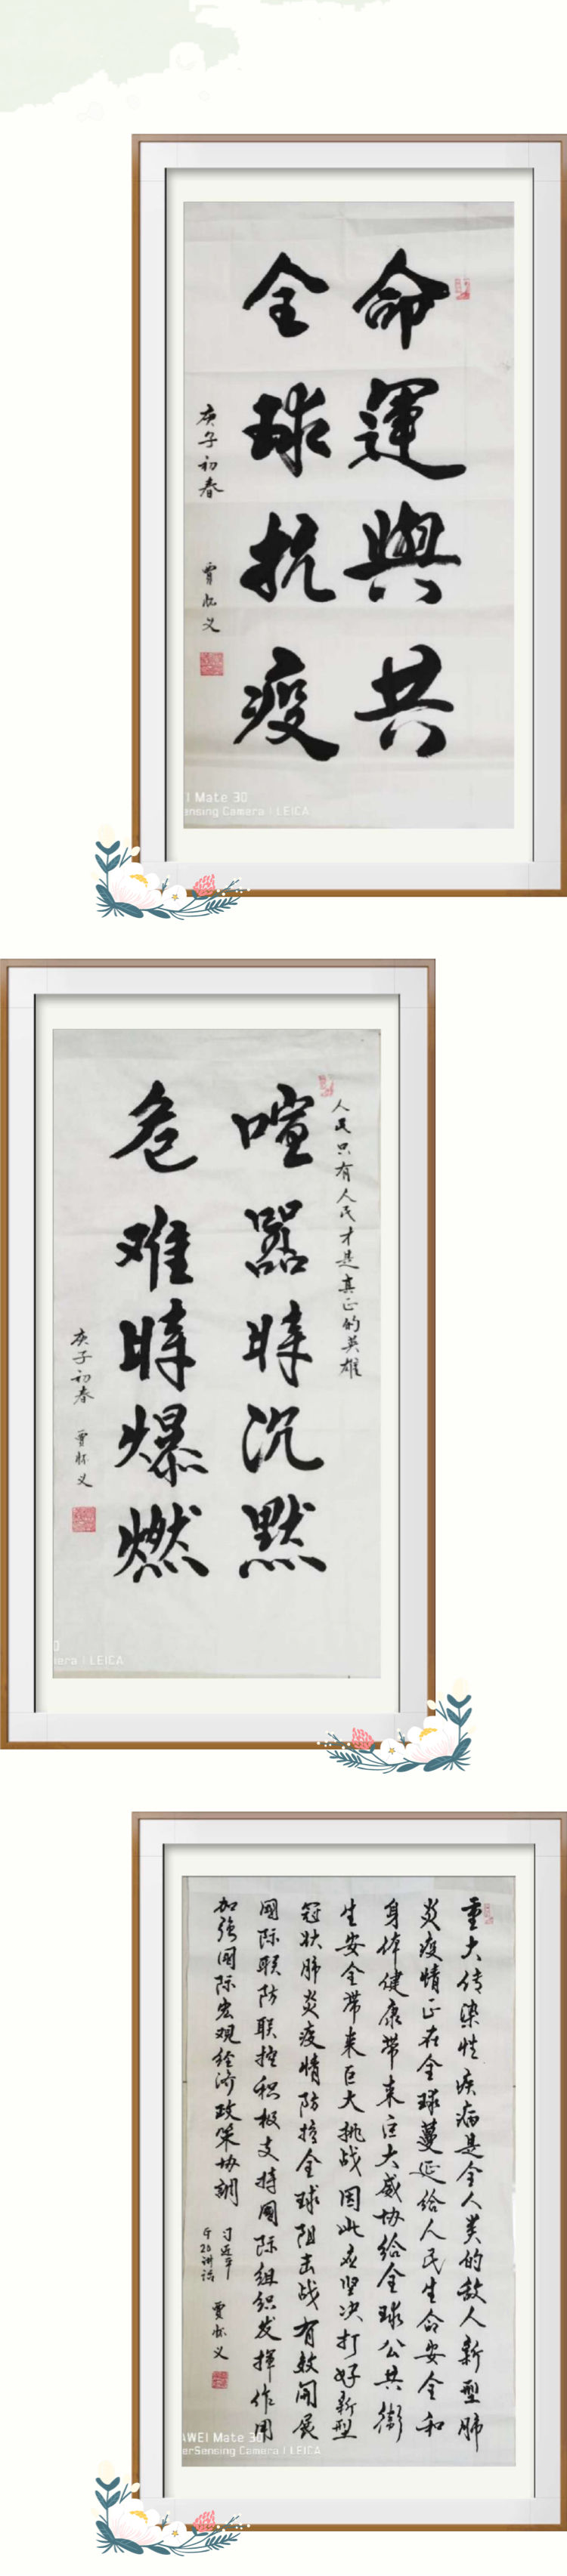 命運與共
全球抗疫
庚子初春 賈怀义
I Mate 30
ensing Camera | LEICA
人民只有人民才是真正的英雄
喧嚣時沉默
危难時爆燃
庚子初春 賈怀义
iera | LEICA
重大传染性疾病是全人类的敌人新型肺
炎疫情正在全球蔓延给人民生命安全和
身体健康带来巨大威胁给全球公共衛
生安全带来巨大挑战因此应坚决打好新型
冠状肺炎疫情防控全球阻击战有效開展
國际联防联控积极支持國际组织发挥作用
加強国际宏观经济政策协調
习近平
G20讲话
賈怀义
AWEI Mate 30
erSensing Camera | LEICA